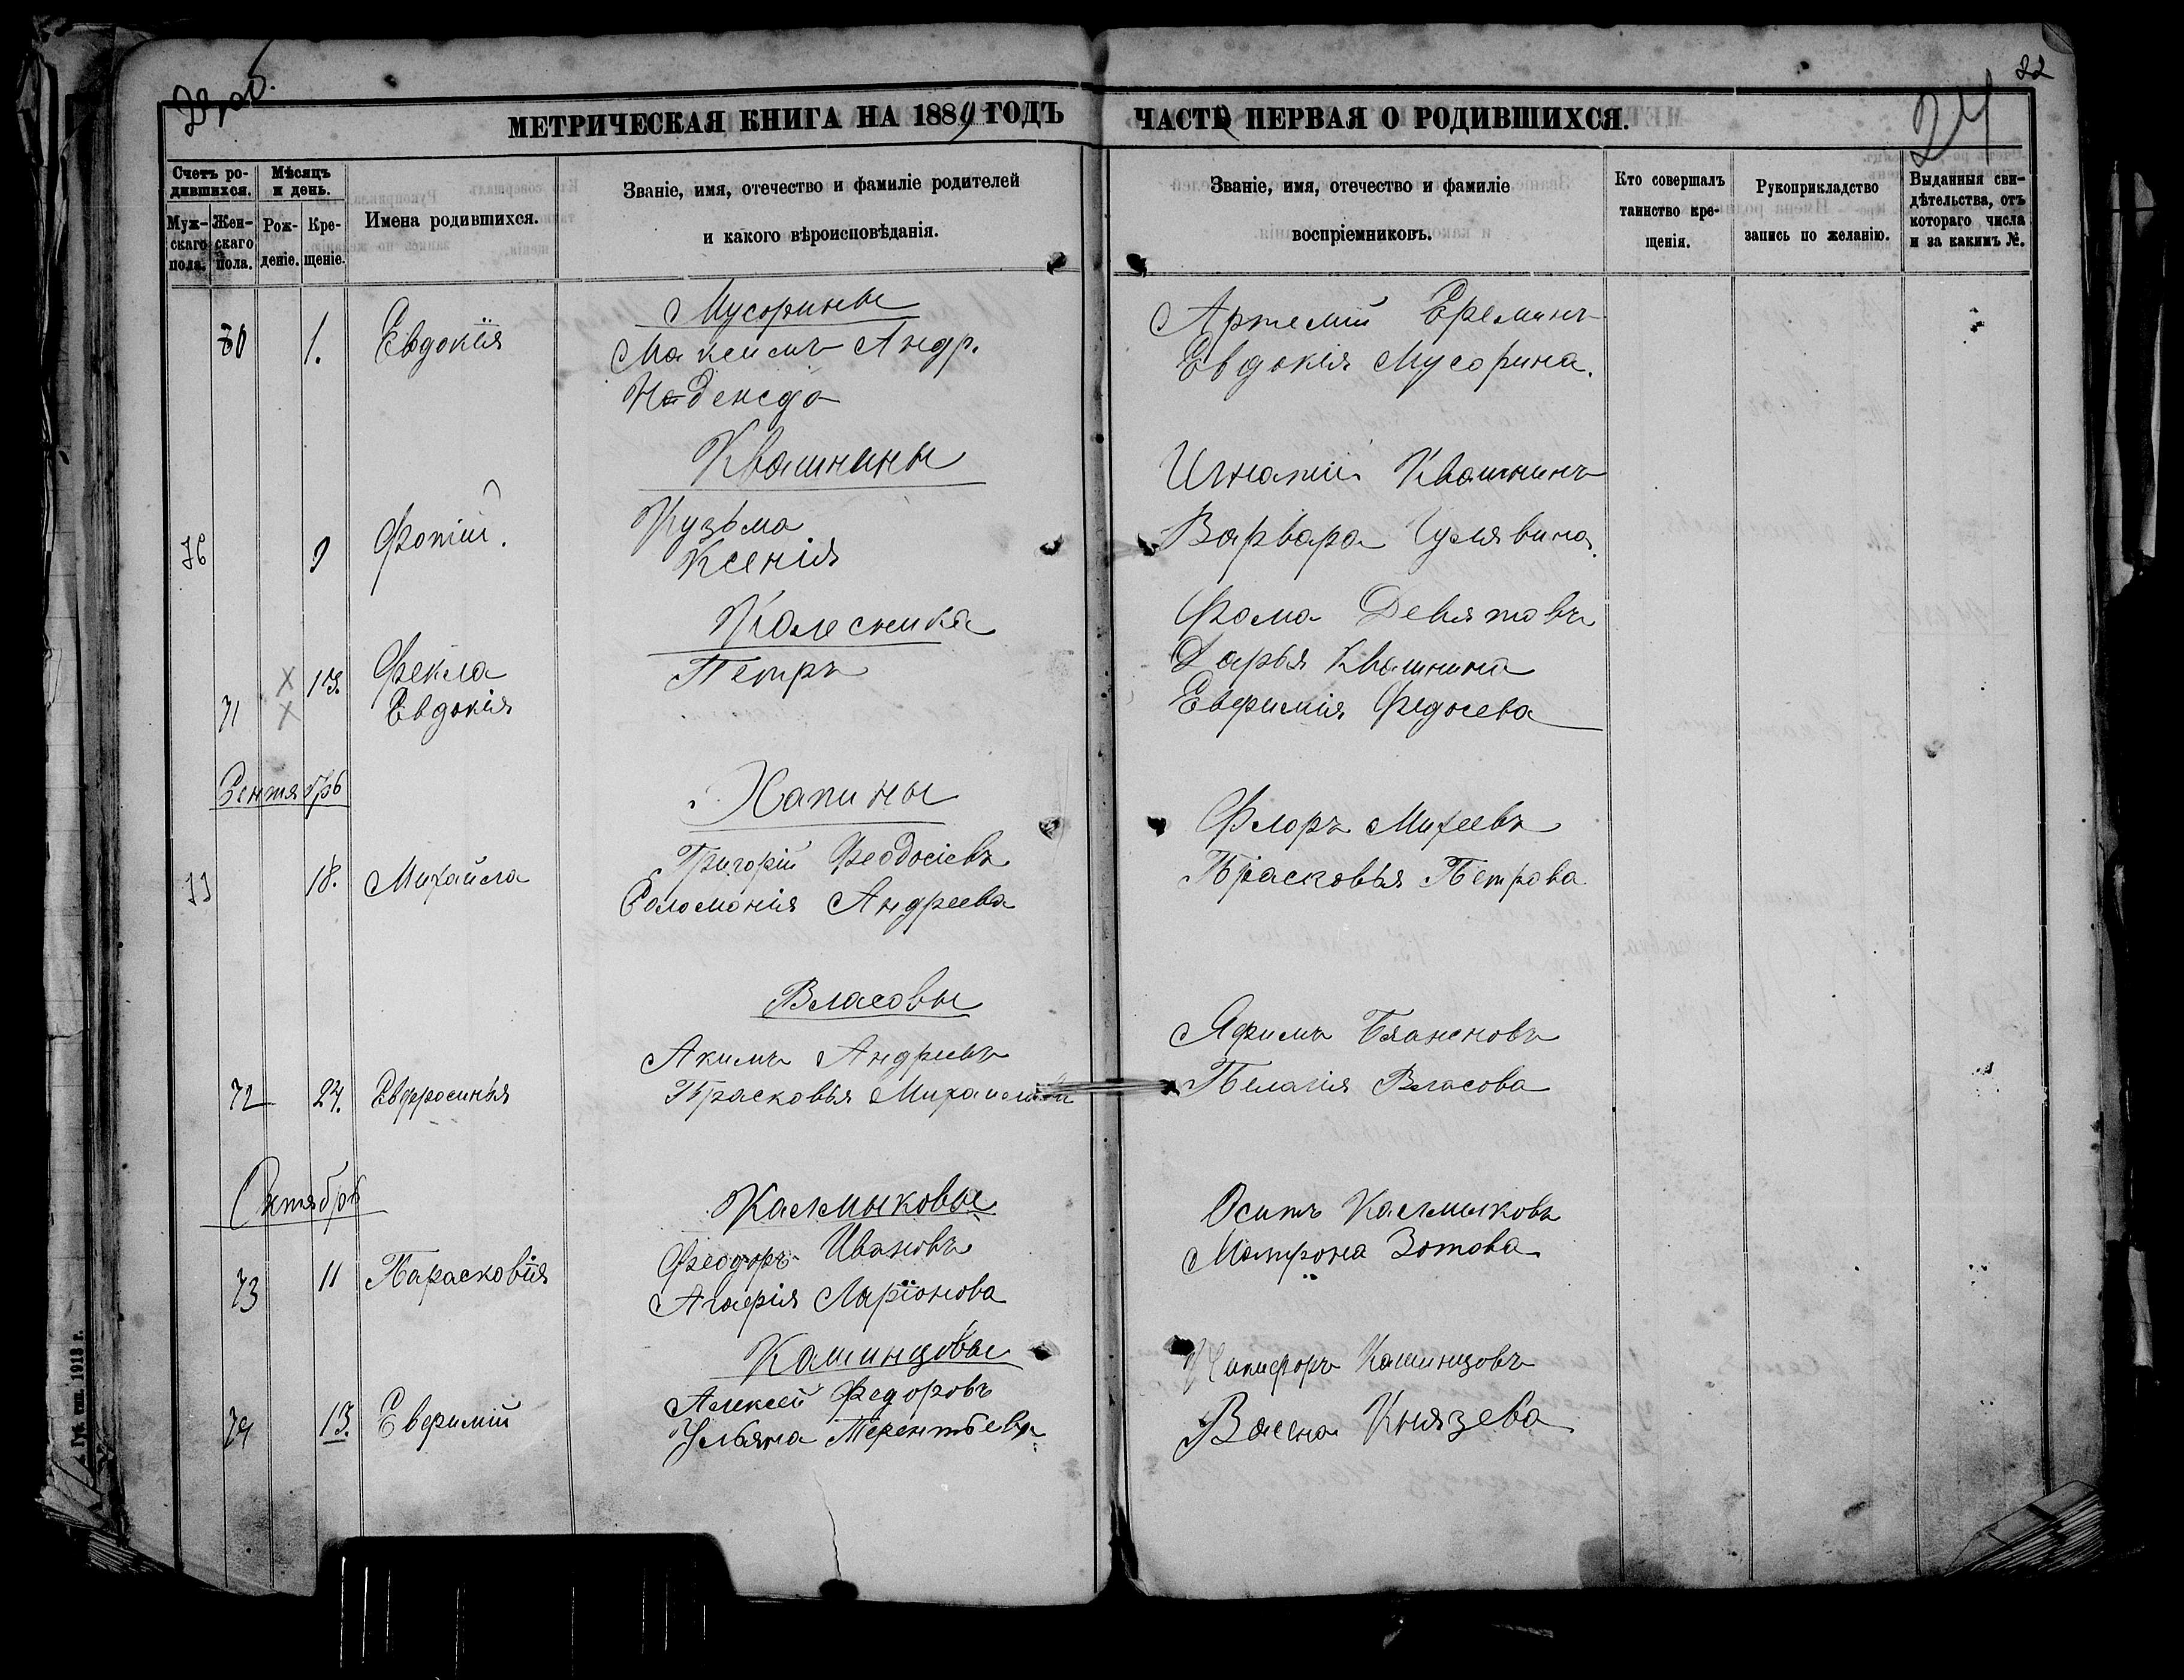 22
24
МЕТРИЧЕСКАЯ КНИГА НА 1889 ГОДЪ
ЧАСТЬ ПЕРВАЯ О РОДИВШИХСЯ.
Счетъ ро-
дившихся.
Муж-
скаго
пола.
Жен-
скаго
пола.
Мѣсяцъ
и день.
Рож-
деніе.
Кре-
щеніе.
Имена родившихся.
Званіе, имя, отечество и фамиліе родителей
и какого вѣроисповѣданія.
Званіе, имя, отечество и фамиліе
воспріемниковъ.
Кто совершалъ
таинство кре-
щенія.
Рукоприкладство
запись по желанію.
Выданныя сви-
дѣтельства, отъ
котораго числа
и за какимъ №.
Мусорины
70 1. Евдокія
Максимъ Андр.
Надежда
Артемій Ереминъ
Евдокія Мусорина.
Квашнины
76 9 Фотій.
Кузьма
Ксенія
Игнатій Квашнинъ
Варвара Гулявина.
Колесника
13. Фекла
71 Евдокія
Петръ
Фома Девятовъ
Дарья Квашнина
Евфимія Федосева
Сентябрь
Хапины
77 18. Михайла
Григорій Феодосіевъ
Соломонія Андреева
Флоръ Михеевъ
Прасковья Петрова
Власовы
72 24. Евфросинья
Акимъ Андреевъ
Прасковья
Яфимъ
Пелагія Власова
Октябрь
Калмыковы
73 11 Парасковія
Феодоръ Ивановъ
Агафія Ларіонова
Осипъ Калмыковъ
Матрона Зотова
Кашинцовы
74 13. Евфимій
Алексей Федоровъ
Ульяна Терентьева
Никифоръ Кашинцовъ
Васса Князева
Губ. тип. 1913 г.